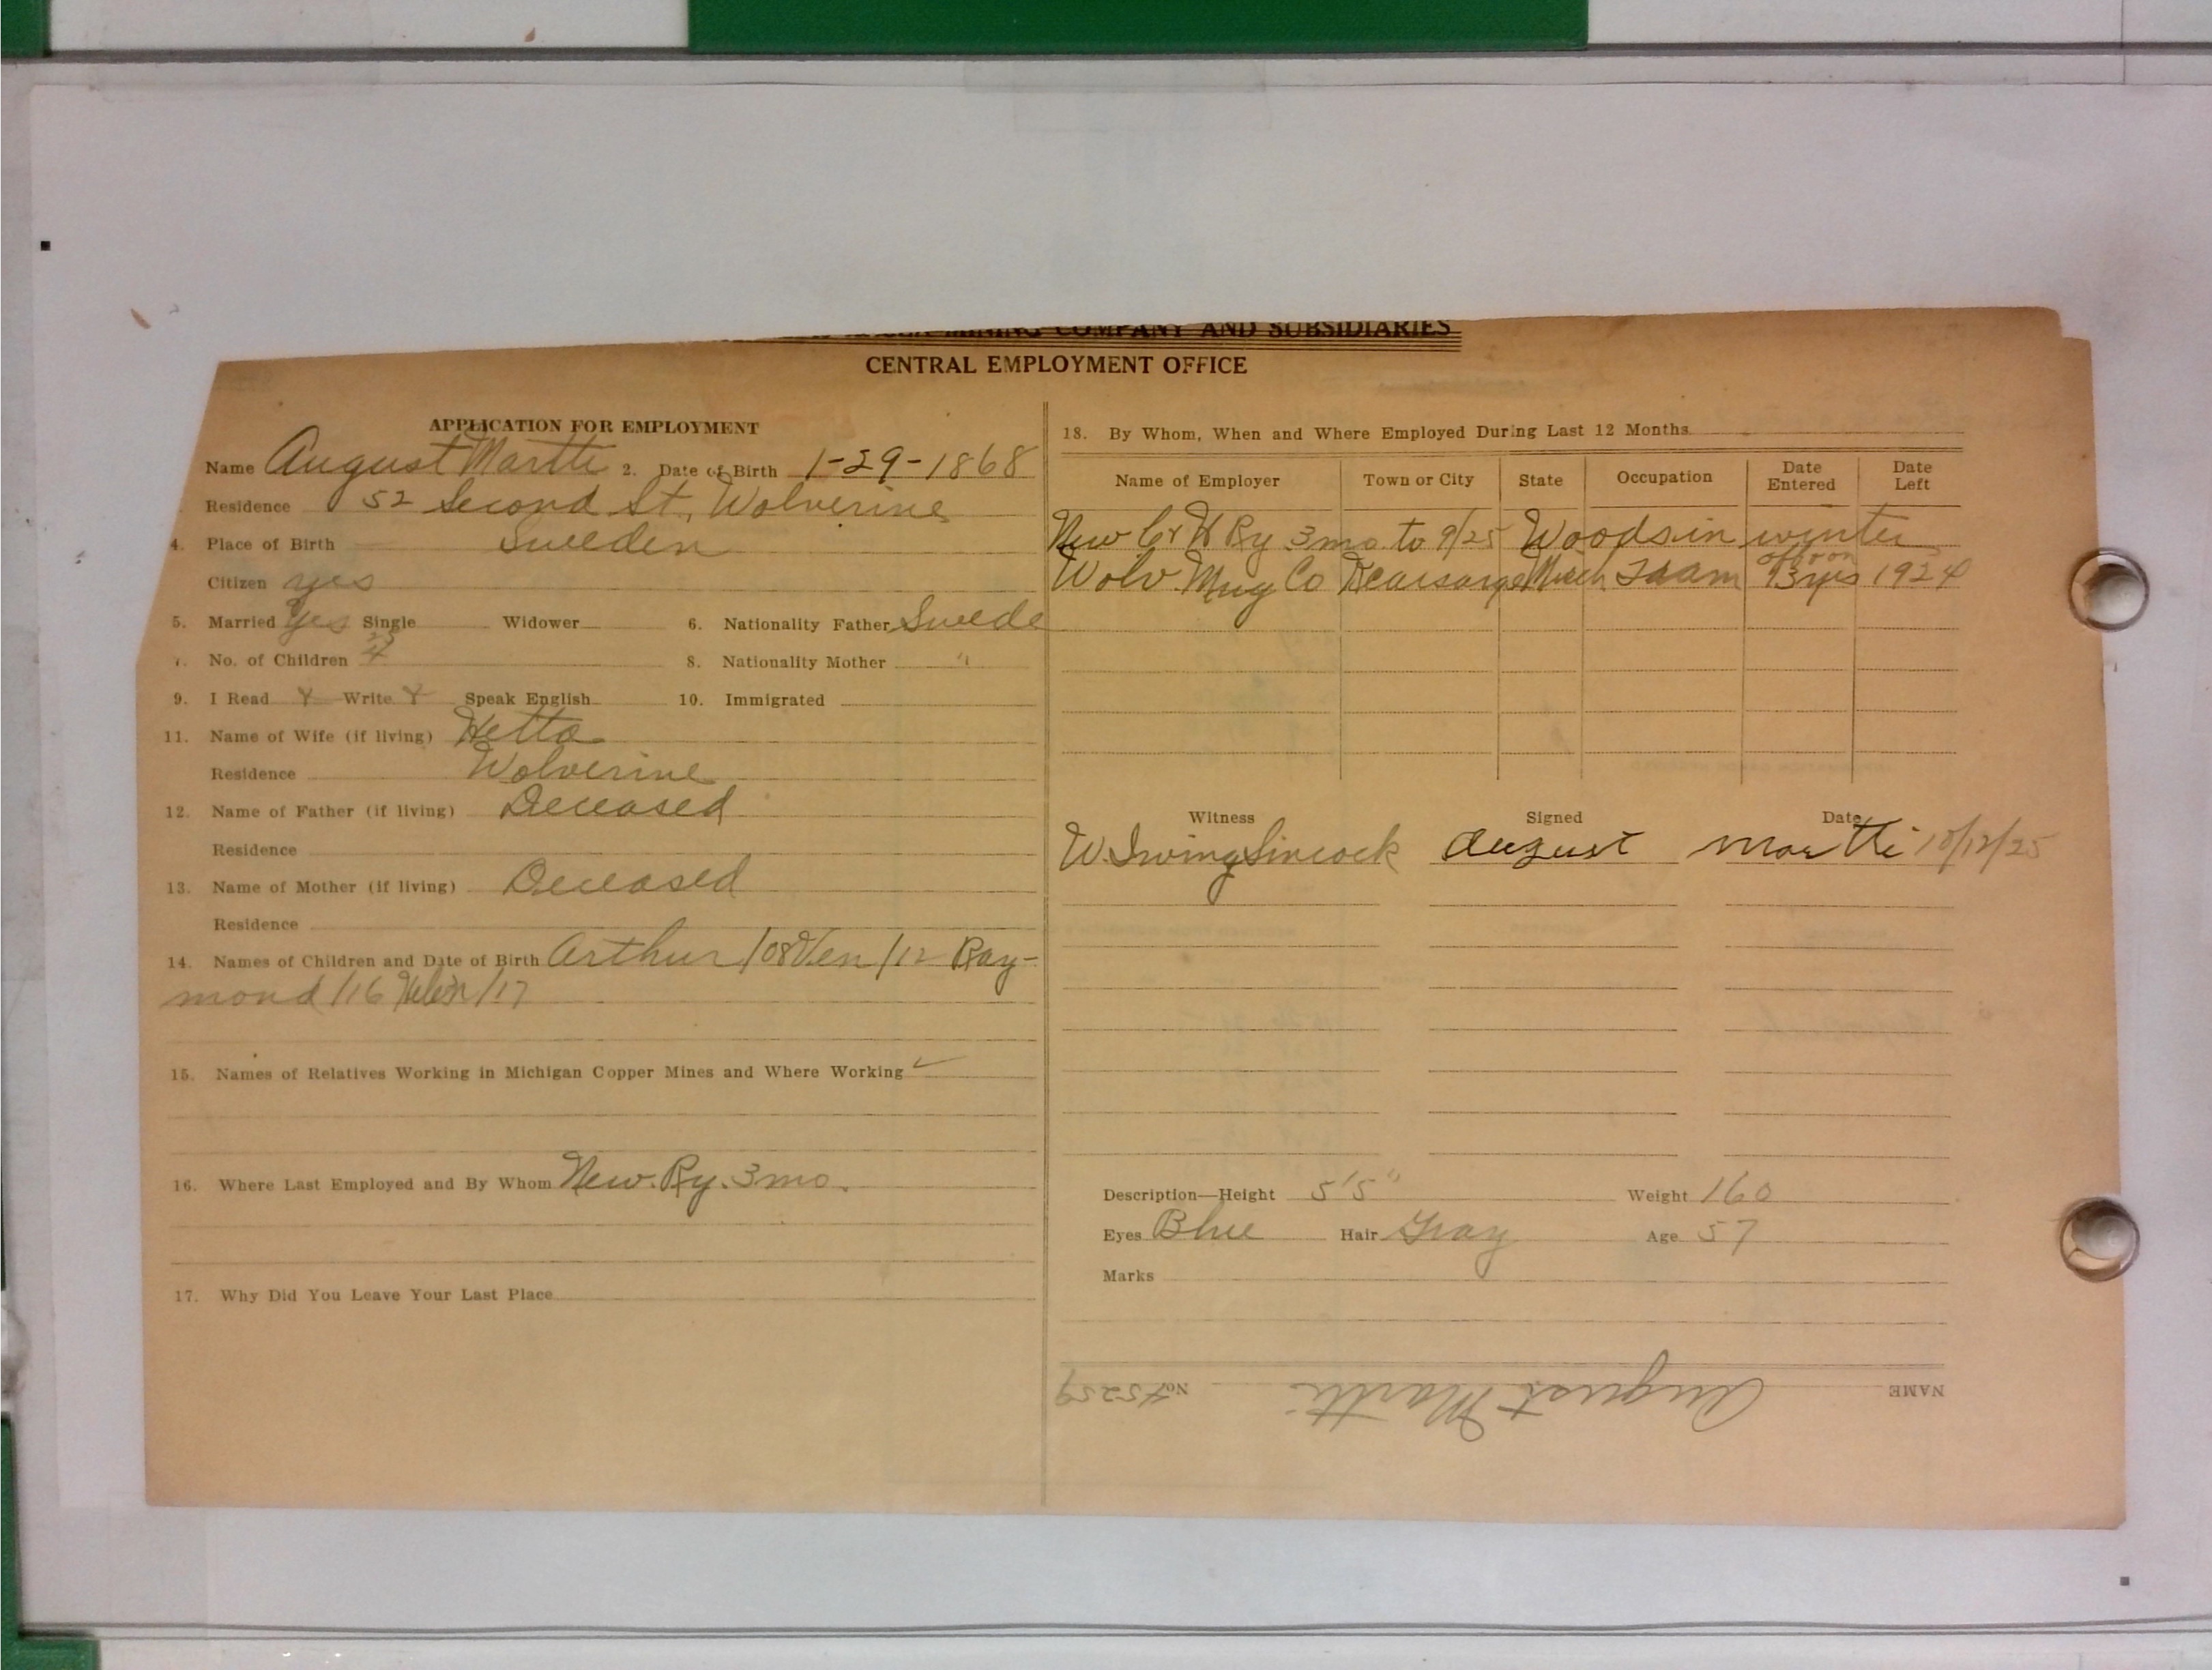 MINING COMPANY AND SUBSIDIARIES
CENTRAL EMPLOYMENT OFFICE
APPLICATION FOR EMPLOYMENT
Name August Martti 2. Date of Birth 1-29-1868
Residence 52 Second St, Wolverine
4. Place of Birth Sweden
Citizen yes
5. Married Yes Single Widower 6. Nationality Father Swede
7. No. of Children 4 8. Nationality Mother "
9. I Read Y Write Y Speak English 10. Immigrated
11. Name of Wife (if living)
Residence Wolverine
12. Name of Father (if living) Deceased
Residence
13. Name of Mother (if living) Deceased
Residence
14. Names of Children and Date of Birth Arthur /08 /12 Ray-
mond /16 /17
15. Names of Relatives Working in Michigan Copper Mines and Where Working ✓
16. Where Last Employed and By Whom Kew. Ry. 3 mo.
17. Why Did You Leave Your Last Place
18. By Whom, When and Where Employed During Last 12 Months
Name of Employer Town or City State Occupation Date Entered Date Left
Kew Ry 3 mo to 9/25 Woods in winter
off & on
Wolv. Mng Co Kearsarge Mich 13 yrs 1924
Witness Signed Date
W. Irving Sincock August Martti 10/12/25
Description—Height 5'5" Weight 160
Eyes Blue Hair Gray Age 57
Marks
NAME August Martti No. 45259